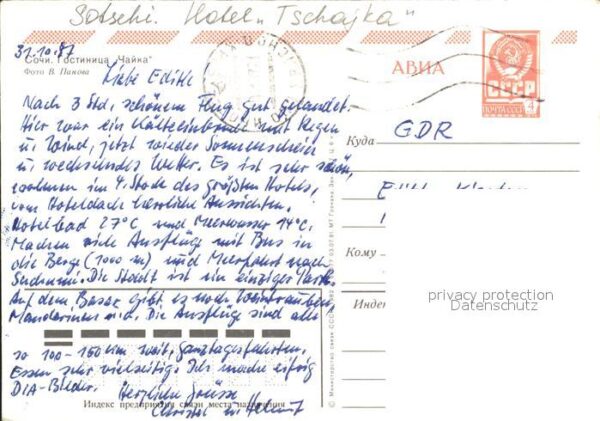 Sotschi. Hotel „Tschajka"
31.10.87
Сочи. Гостиница "Чайка"
Фото В. Панова
Liebe Edith!
Nach 3 Std. schönem Flug gut gelandet.
Hier war ein Kälteeinbruch mit Regen
u. Wind, jetzt wieder Sonnenschein
u. wechselndes Wetter. Es ist sehr schön,
wohnen im 4. Stock des größten Hotels,
vom Hoteldach herrliche Aussichten.
Hotelbad 27°C und Meerwasser 14°C.
Machen viele Ausflüge mit Bus in
die Berge (1000 m) und Meerfahrt nach
Suchumi. Die Stadt ist ein einziger Park.
Auf dem Basar gibt es noch Weintrauben,
Mandarinen u.a. Die Ausflüge sind alle
so 100-150 km weit, Ganztagesfahrten.
Essen sehr vielseitig. Ich mache eifrig
DIA-Bilder. Herzliche Grüsse
Christel u. Helmut
Индекс предприятия связи места назначения
АВИА
СССР
ПОЧТА
4
Куда
GDR
Кому
Индекс
privacy protection
Datenschutz